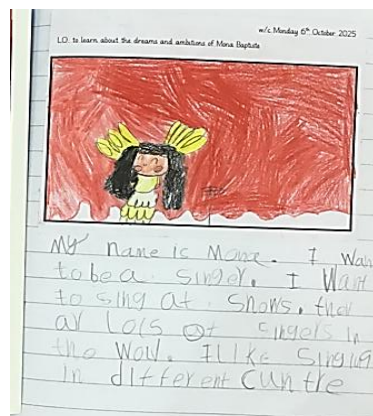 w/c Monday 6th October 2025
L.O. to learn about the dreams and ambitions of Mona Baptiste
My name is Mona. I Wan
to be a singer. I Want
to sing at shows. ther
ar lots of singers in
the World. I like Singing
in different cuntre